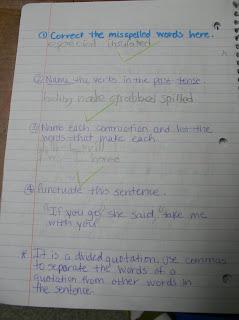 ① Correct the misspelled words here.
especial insulated
② Name the verbs in the past tense.
made grabbed spilled
③ Name each contraction and list the
words that make each.
④ Punctuate this sentence.
"If you go," she said, "take me
with you."
* It is a divided quotation. Use commas
to separate the words of a
quotation from other words in
the sentence.